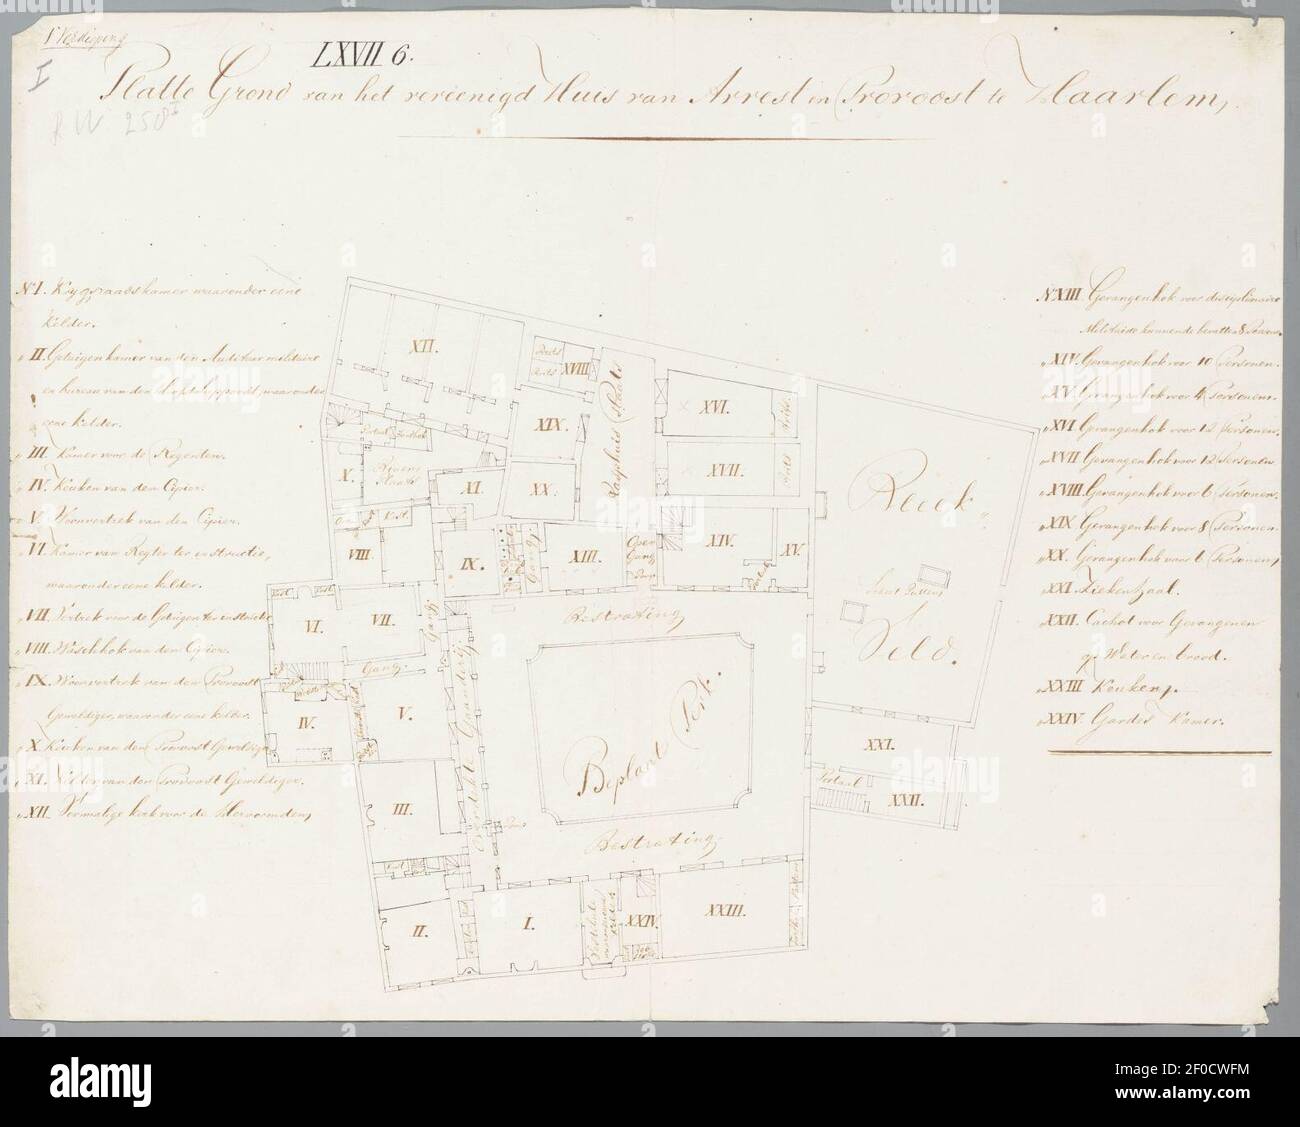 1e Verdieping
LXVII 6.
I
Platte Grond van het vereenigd Huis van Arrest en Provoost te Haarlem,
RW 258 I
N.I. Krygsraadskamer waaronder eene
kelder.
" II. Getuigen kamer van den Auditeur militaire
en bureau van den waaronder
eene kelder.
" III. Kamer voor de Regenten.
" IV. Keuken van den Cipier.
" V. Woonvertrek van den Cipier.
" VI. Kamer van Regter ter instructie,
waaronder eene kelder.
" VII. Vertrek voor de Getuigen ter instructie
" VIII. Waschhok van den Cipier.
" IX. Woonvertrek van den Provoost
Geweldiger, waaronder eene kelder.
" X. Keuken van den Provoost Geweldiger
" XI. Kelder van den Provoost Geweldiger.
" XII. Voormalige kerk voor de Hervormden,
N.XIII. Gevangenhok voor disciplinaire
Militaire kunnende bevatten 8 Person.
" XIV. Gevangenhok voor 10 Personen.
" XV. Gevangenhok voor 4 Personen.
" XVI. Gevangenhok voor 12 Personen.
" XVII. Gevangenhok voor 12 Personen
" XVIII. Gevangenhok voor 6 Personen.
" XIX. Gevangenhok voor 8 Personen.
" XX. Gevangenhok voor 6 Personen,
" XXI. Ziekenzaal.
" XXII. Cachot voor Gevangenen
op Water en brood.
" XXIII Keuken,
" XXIV. Gardes Kamer.
XII.
XVIII
XIX.
Raaphuis Plaats
XVI.
XVII.
Portaal
X.
Binnen
Plaats
XI.
XX.
VIII.
IX.
Gang
XIII.
Open
Gang
XIV.
XV.
Bleek
Veld.
VI.
VII.
Gang
Gang
Bestrating
IV.
V.
Overdekte Gaanderij
Beplant Perk.
III.
Bestrating
XXI.
Portaal
XXII.
II.
I.
Vestibule
XXIV.
XXIII.
alamy
Image ID: 2F0CWFM
www.alamy.com